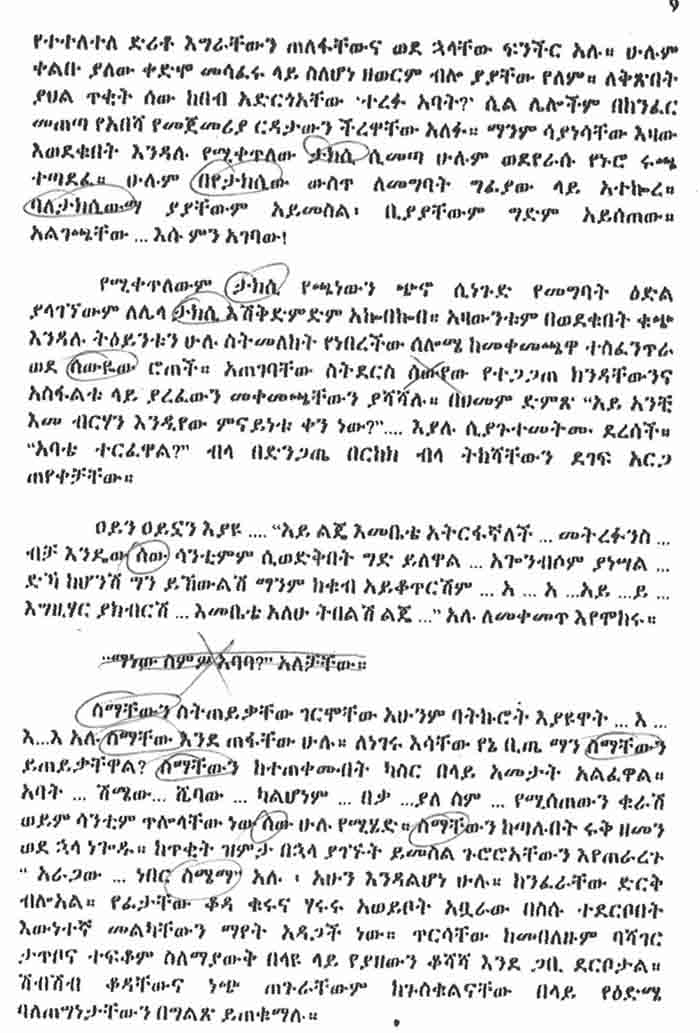 9
የተተለተለ ድሪቶ እግራቸውን ጠለፋቸውና ወደ ኋላቸው ፍንችር አሉ። ሁሉም
ቀልቡ ያለው ቀድሞ መሳፈሩ ላይ ስለሆነ ዘወርም ብሎ ያያቸው የለም። ለቅጽበት
ያህል ጥቂት ሰው ከበብ አድርጎአቸው 'ተረፉ አባት?' ሲል ሌሎችም በከንፈር
መጠጣ የአበሻ የመጀመሪያ ርዳታውን ችረዋቸው አለፉ። ማንም ሳያነሳቸው እዛው
እወደቁበት እንዳሉ የሚቀጥለው ታክሲ ሲመጣ ሁሉም ወደየራሱ የኑሮ ሩጫ
ተጣደፈ። ሁሉም በየታክሲው ውስጥ ለመግባት ግፊያው ላይ አተኰረ።
ባለታክሲውማ ያያቸውም አይመስል፣ ቢያያቸውም ግድም አይሰጠው።
አልገጫቸው ... እሱ ምን አገባው!
የሚቀጥለውም ታክሲ የጫነውን ጭኖ ሲነጉድ የመግባት ዕድል
ያላገኘውም ለሌላ ታክሲ እሽቅድምድም አኰበኰበ። አዛውንቱም በወደቁበት ቁጭ
እንዳሉ ትዕይንቱን ሁሉ ስትመለከት የነበረችው ሰሎሜ ከመቀመጫዋ ተስፈንጥራ
ወደ ሰውዬው ሮጠች። አጠገባቸው ስትደርስ ሰውየው የተጋጋጠ ክንዳቸውንና
አስፋልቱ ላይ ያረፈውን መቀመጫቸውን ያሻሻሉ። በህመም ድምጽ "አይ አንቺ
እመ ብርሃን እንዲየው ምናይነቱ ቀን ነው?".... እያሉ ሲያጉተመትሙ ደረሰች።
"አባቴ ተርፈዋል?" ብላ በድንጋጤ በርከክ ብላ ትከሻቸውን ደገፍ አርጋ
ጠየቀቻቸው።
ዐይን ዐይኗን እያዩ .... "አይ ልጄ እመቤቴ አትርፋኛለች ... መትረፉንስ ...
ብቻ እንዴው ሰው ሳንቲምም ሲወድቅበት ግድ ይለዋል ... አጐንብሶም ያነሣል ...
ድኻ ከሆንሽ ግን ይኸውልሽ ማንም ከቁብ አይቆጥርሽም ... አ ... አ ...አይ ...ይ ...
እግዚሃር ያክብርሽ ... እመቤቴ አለሁ ትበልሽ ልጄ ..." አሉ ለመቀመጥ እየሞከሩ።
"ማነው ስምዎ አባባ?" አለቻቸው።
ስማቸውን ስትጠይቃቸው ገርሞቸው አሁንም ባትኩሮት እያዩዋት ... እ ...
እ...እ አሉ ስማቸው እንደ ጠፋቸው ሁሉ። ለነገሩ እሳቸው የኔ ቢጤ ማን ስማቸውን
ይጠይቃቸዋል? ስማቸውን ከተጠቀሙበት ካስር በላይ አመታት አልፈዋል።
አባት ... ሽሜው... ሺባው ... ካልሆነም ... በቃ ...ያለ ስም ... የሚሰጠውን ቁራሽ
ወይም ሳንቲም ጥሎላቸው ነው ሰው ሁሉ የሚሄድ። ስማቸውን ከጣሉበት ሩቅ ዘመን
ወደ ኋላ ነጐዱ። ከጥቂት ዝምታ በኋላ ያገኙት ይመስል ጉሮሮአቸውን እየጠራረጉ
" አራጋው ... ነበር ስሜማ" አሉ ፣ አሁን እንዳልሆነ ሁሉ። ከንፈራቸው ድርቅ
ብሎአል። የፊታቸው ቆዳ ቁሩና ሃሩሩ አወይቦት አቧራው በስሱ ተደርቦበት
እውነተኛ መልካቸውን ማየት አዳጋች ነው። ጥርሳቸው ከመበለዙም ባሻገር
ታጥቦና ተፍቆም ስለማያውቅ በላዩ ላይ የያዘውን ቆሻሻ እንደ ጋቢ ደርቦታል።
ሽብሽብ ቆዳቸውና ነጭ ጠጉራቸውም ከጉስቁልናቸው በላይ የዕድሜ
ባለጠግነታቸውን በግልጽ ይጠቁማሉ።